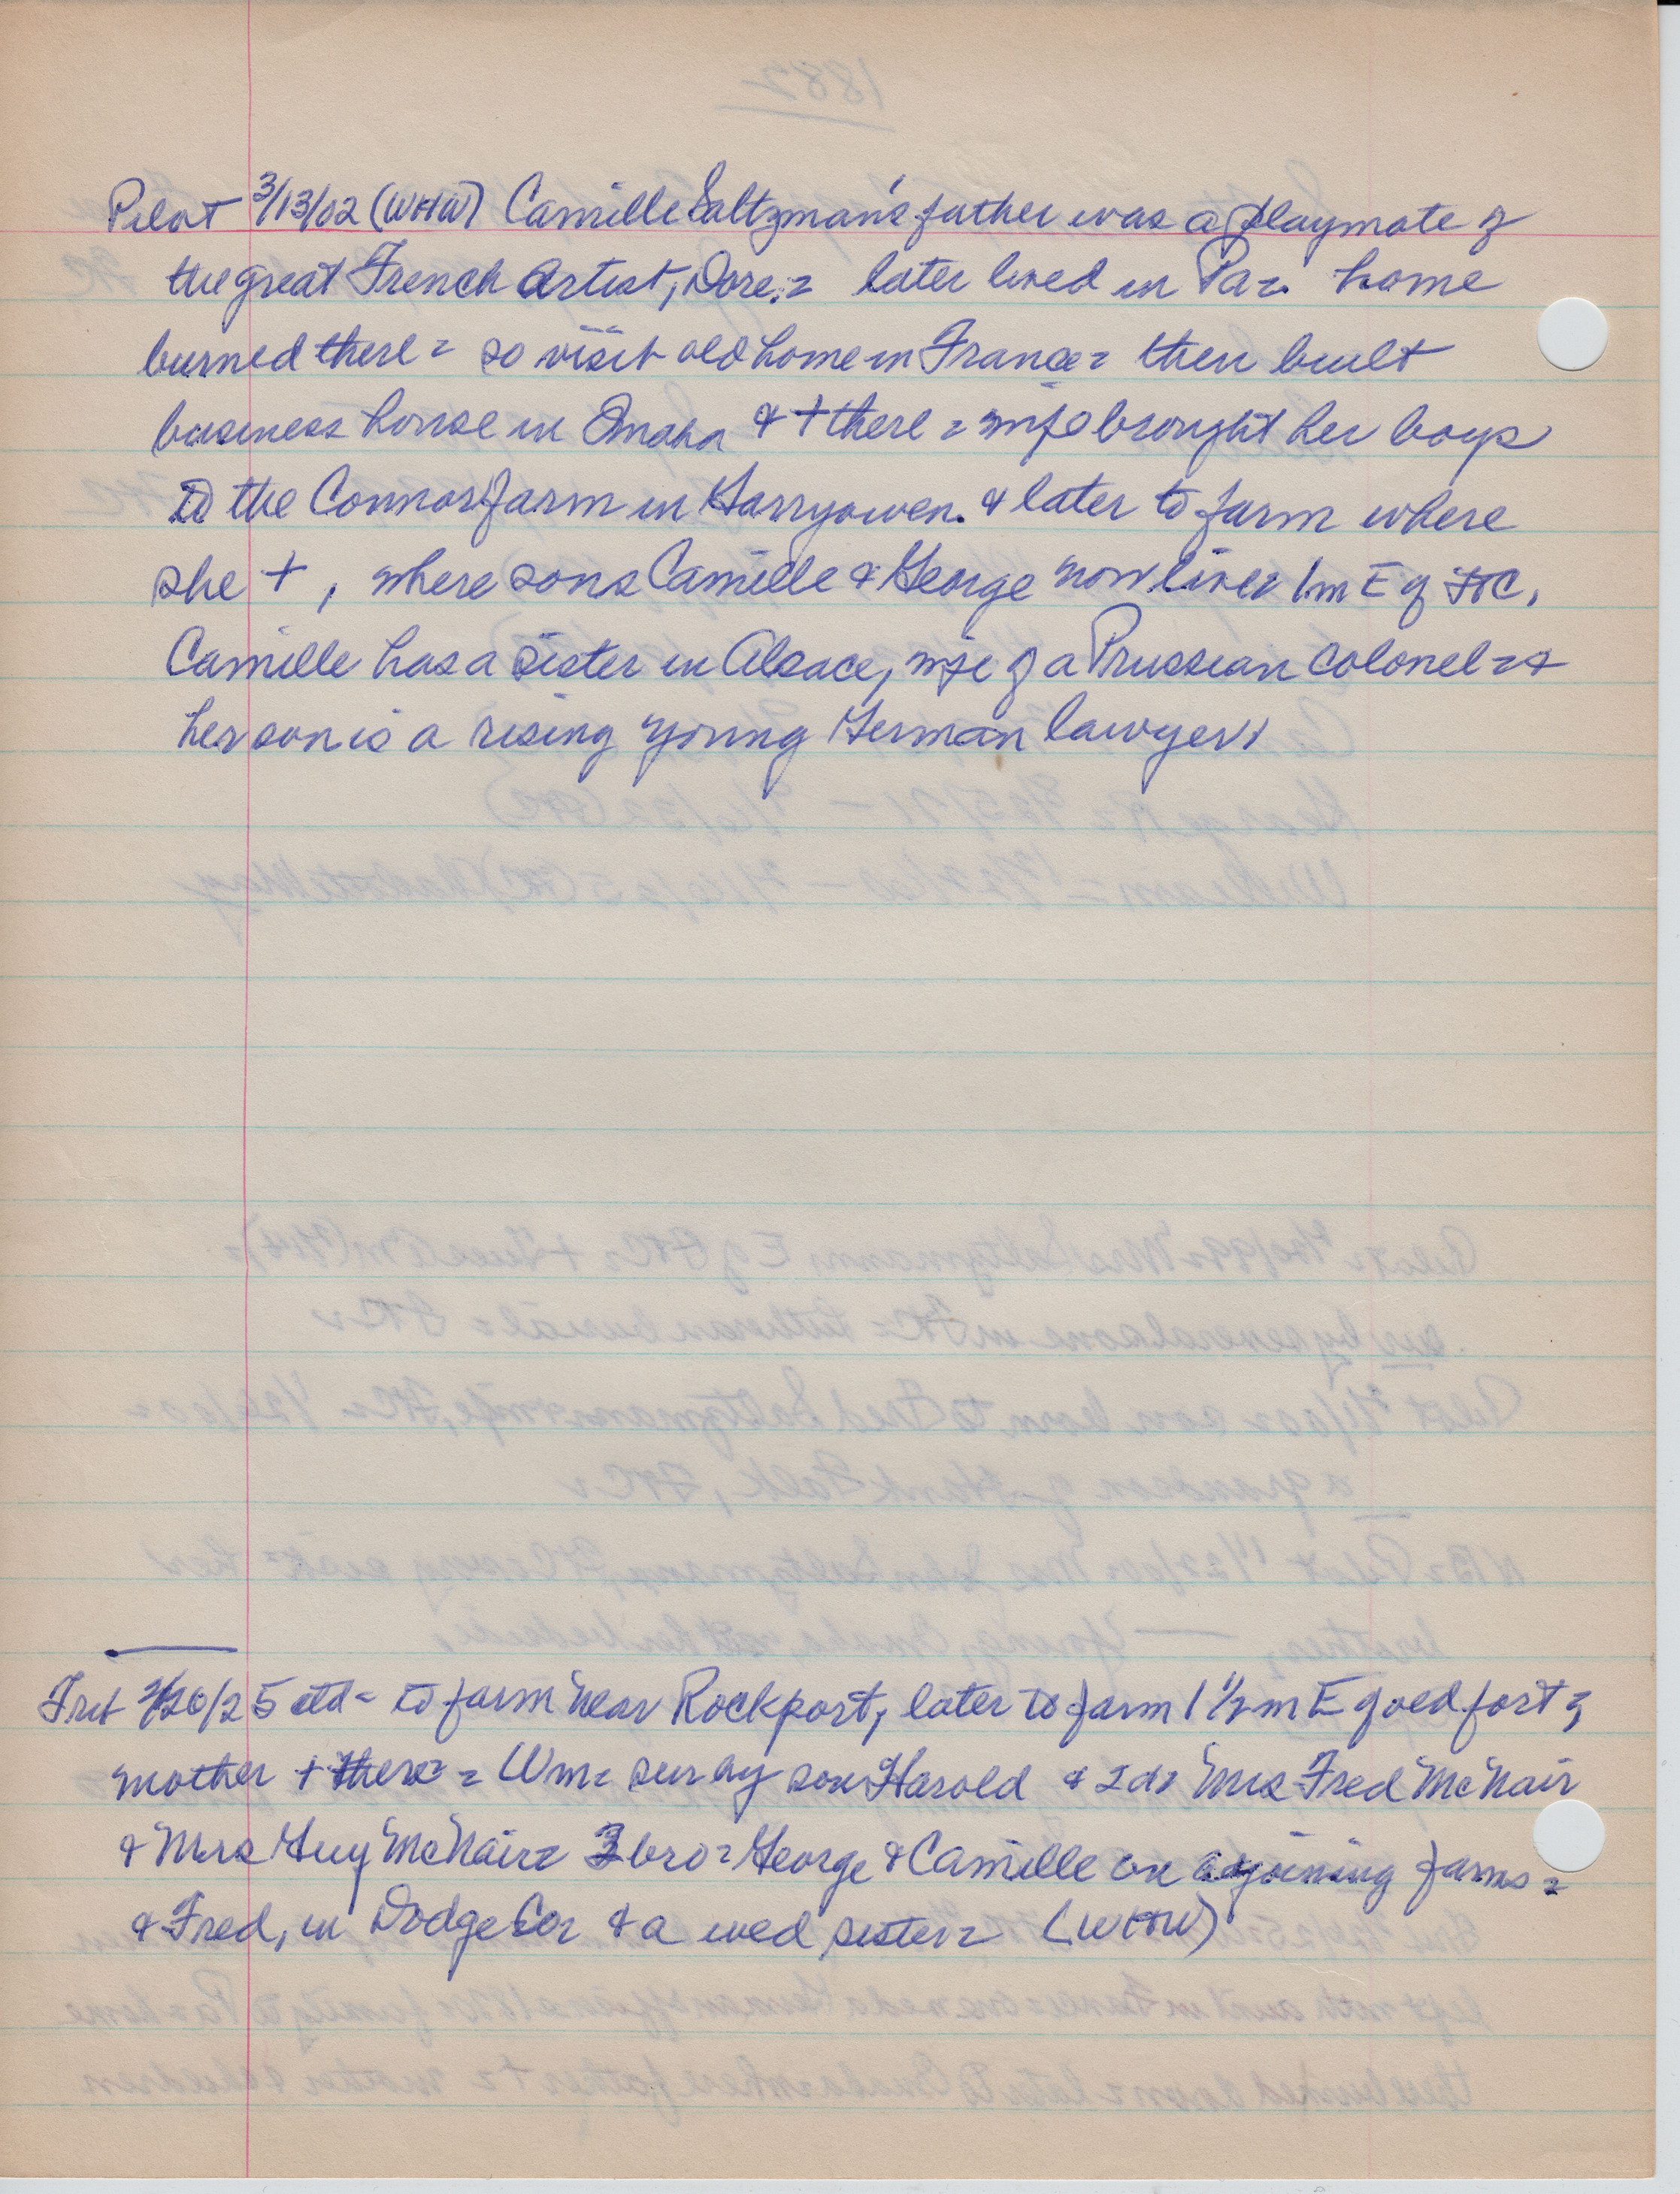 Pilot 3/13/02 (WHW) Camille Saltzman's father was a playmate of
the great French Artist, Dore, = later lived in Pa = home
burned there = so visit old home in France = then built
business house in Omaha & + there = wife brought her boys
to the Connor farm in Garryowen. & later to farm where
she + , where sons Camille & George now live = 1m E of FtC.
Camille has a sister in Alsace, wife of a Prussian colonel = &
her son is a rising young German lawyer.
1882
2/26/25 = to farm near Rockport, later to farm 1 1/2 m E of old fort =
mother + there = Wm = sur by son Harold & 2 d = Mrs Fred McNair
& Mrs Guy McNair = 3 bro = George & Camille on ajoining farms =
& Fred, in Dodge Co = & a wed sister = (WHW)